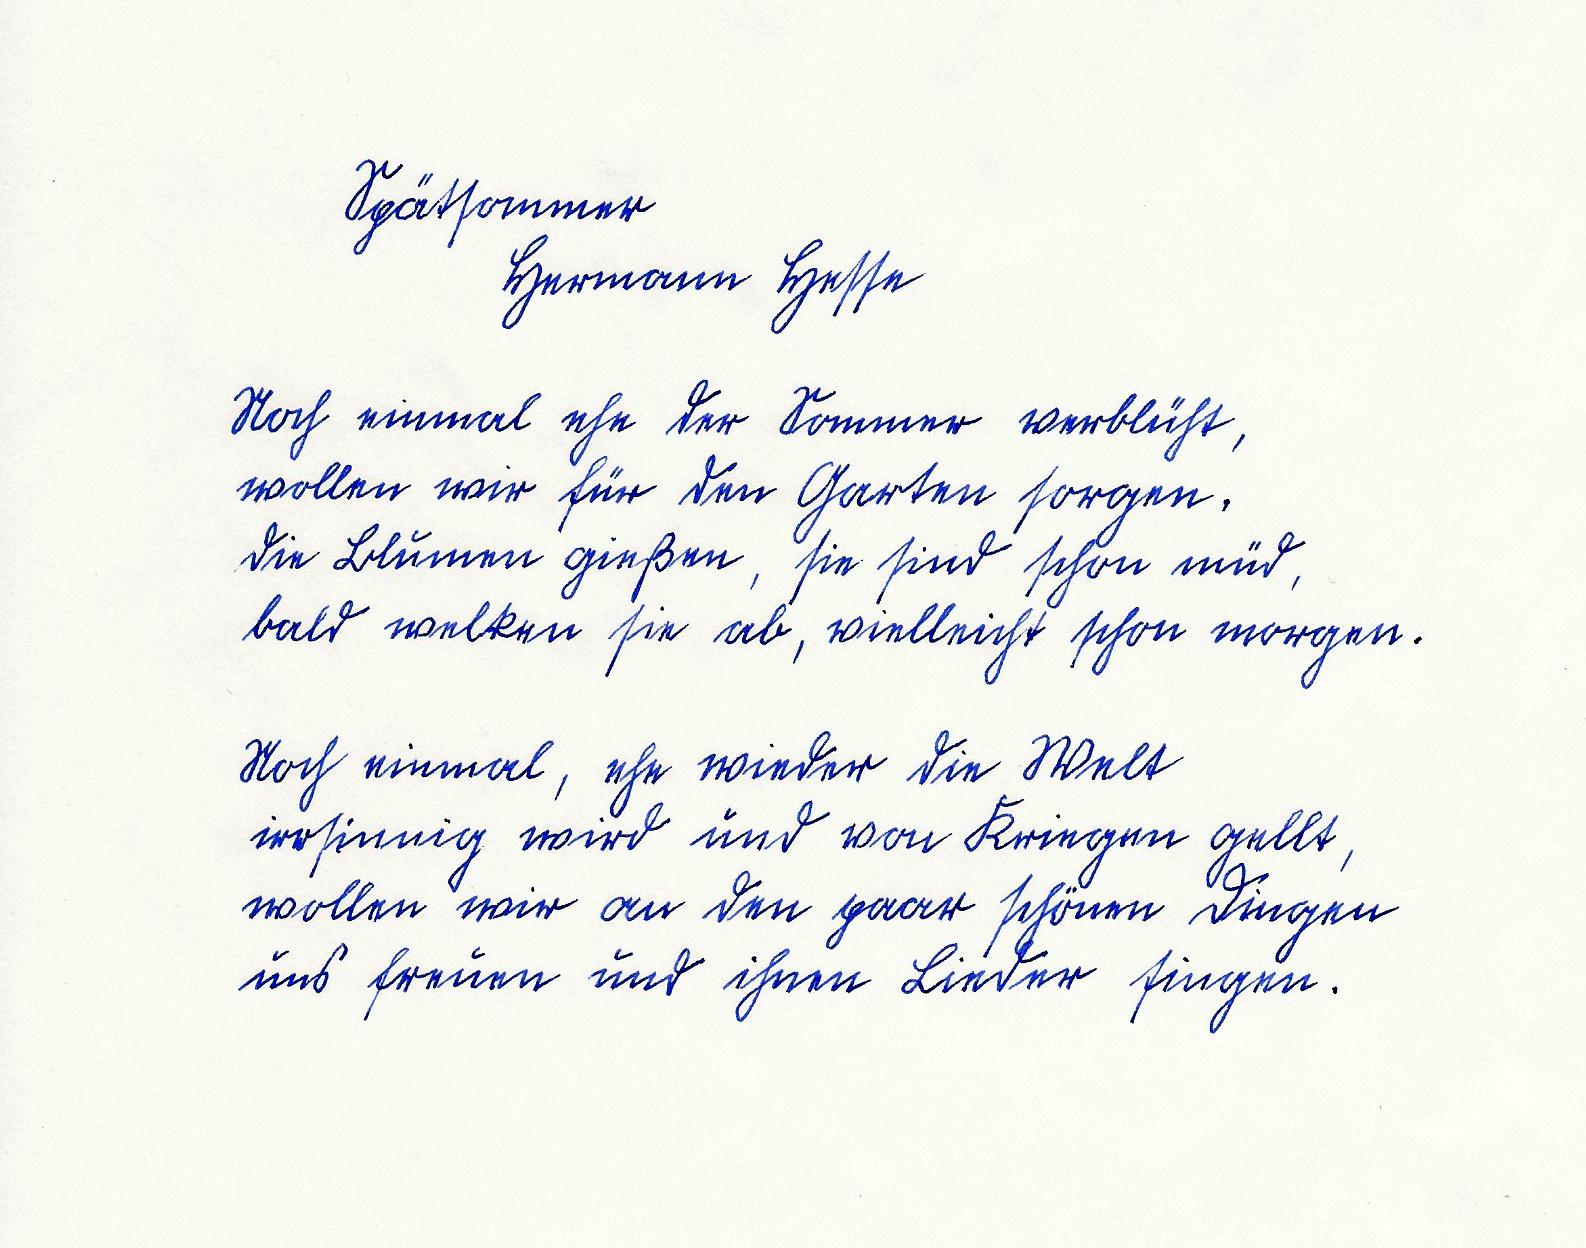 Spätsommer
Hermann Hesse
Noch einmal ehe der Sommer verblüht,
wollen wir für den Garten sorgen.
die Blumen gießen, sie sind schon müd,
bald welken sie ab, vielleicht schon morgen.
Noch einmal, ehe wieder die Welt
irrsinnig wird und von Kriegen gellt,
wollen wir an den paar schönen Dingen
uns freuen und ihnen Lieder singen.